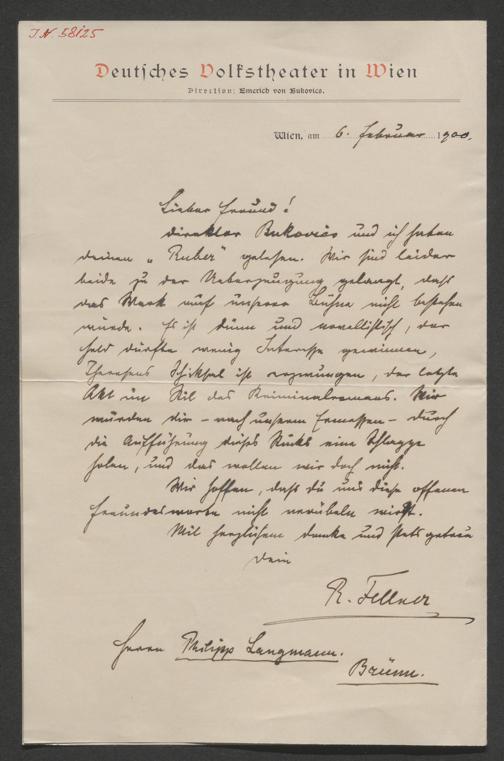 I.N. 58125
Deutsches Volkstheater in Wien
Direction: Emerich von Bukovics.
Wien, am 6. Februar 1900.
Lieber Freund!
Direktor Bukovics und ich haben
deinen „ gelesen. Wir sind leider
beide zu der Ueberzeugung gelangt, daß
das Werk auf unserer Bühne nicht bestehen
würde. Es ist dünn und novellistisch, der
Held dürfte wenig Interesse gewinnen,
Theresens Schiksal ist erzwungen, der letzte
Akt im Stil des Kriminalromans. Wir
würden dir – nach unserem Ermessen – durch
die Aufführung dieses Stücks eine Schlappe
holen, und das wollen wir doch nicht.
Wir hoffen, daß du uns diese offenen
Freundesworte nicht verübeln wirst.
Mit herzlichem Danke und stets getreu
dein
R. Fellner
Herrn Philipp Langmann.
Brünn.